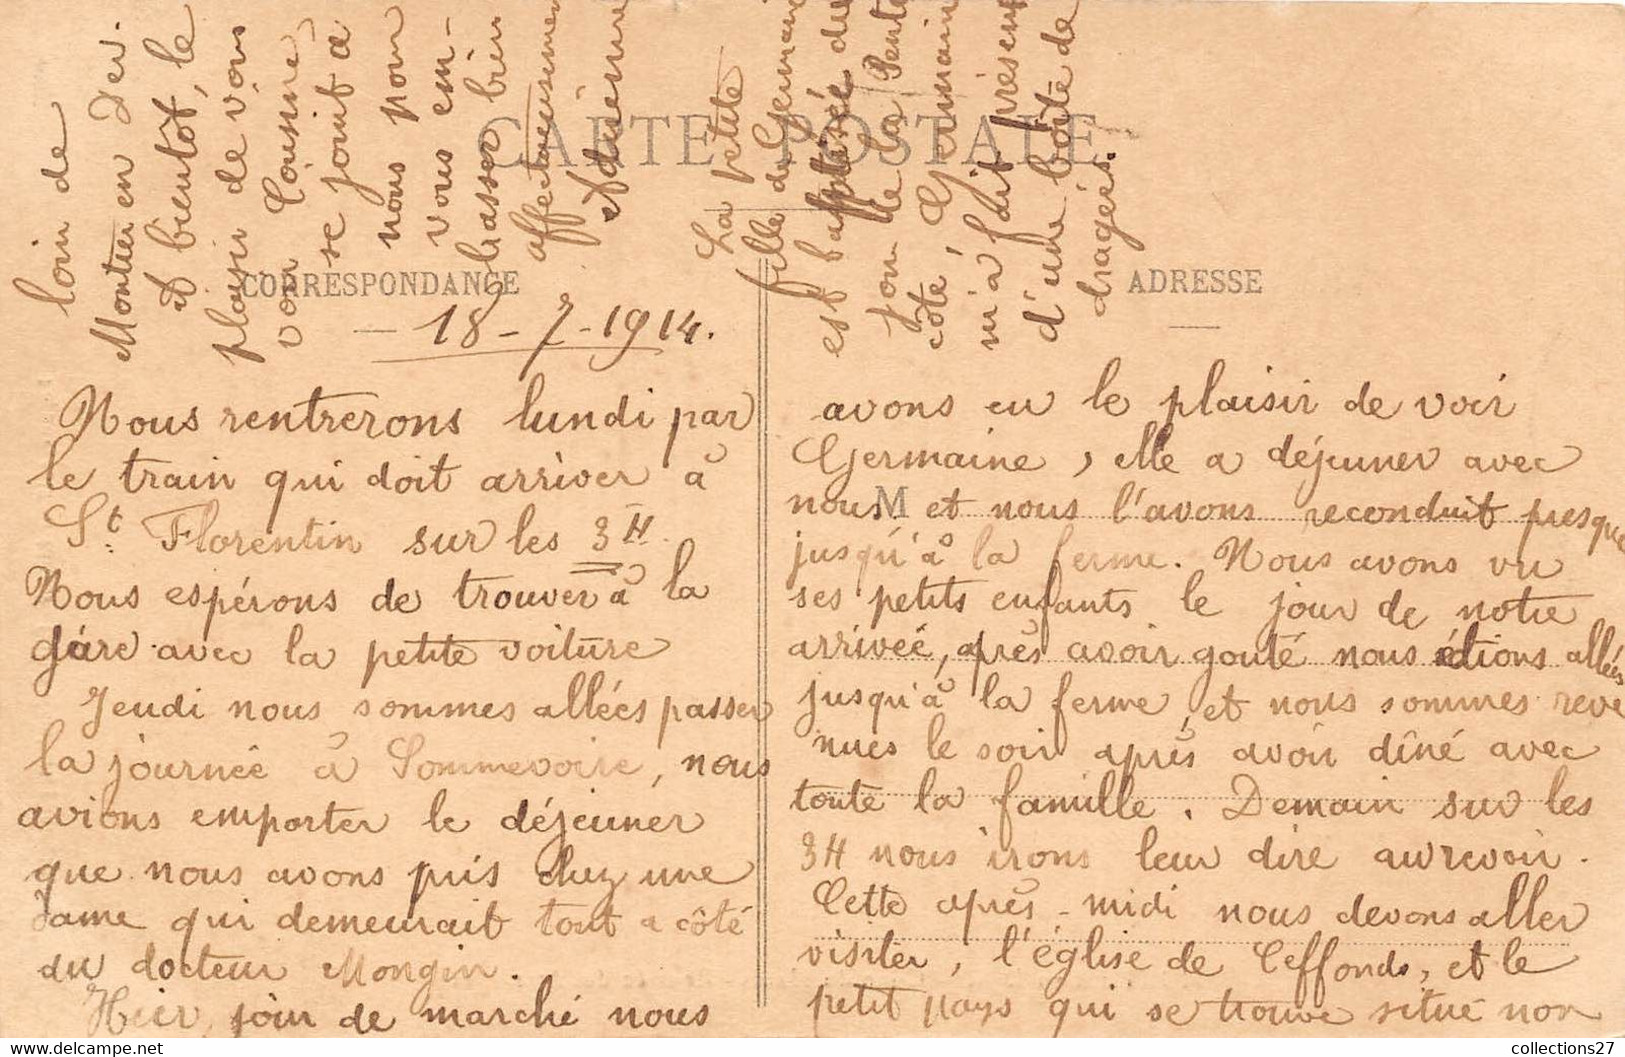 CARTE POSTALE
CORRESPONDANCE
ADRESSE
18-7-1914.
Nous rentrerons lundi par
le train qui doit arriver à
St. Florentin sur les 3H.
Nous espérons de trouver à la
gare avec la petite voiture
Jeudi nous sommes allées passer
la journée à Sommevoire, nous
avions emporter le déjeuner
que nous avons pris chez une
dame qui demeurait tout a côté
du docteur Mongin.
Hier, jour de marché nous
avons eu le plaisir de voir
Germaine, elle a déjeuner avec
nous M et nous l'avons reconduit presque
jusqu'à la ferme. Nous avons vu
ses petits enfants le jour de notre
arrivée, après avoir gouté nous étions allées
jusqu'à la ferme, et nous sommes reve
nues le soir après avoir dîné avec
toute la famille. Demain sur les
3H nous irons leur dire aurevoir.
Cette après-midi nous devons aller
visiter, l'église de Ceffonds, et le
petit pays qui se trouve situé non
loin de
Montier en Der.
A bientôt, le
plaisir de vous
voir Cousine
se joint a
nous pour
vous em-
brasser bien
affectueusement
La petite
fille de Germaine
est baptisée du
jour de la Pente
côte, Germaine
m'a fait présent
d'une boîte de
dragées.
collections27